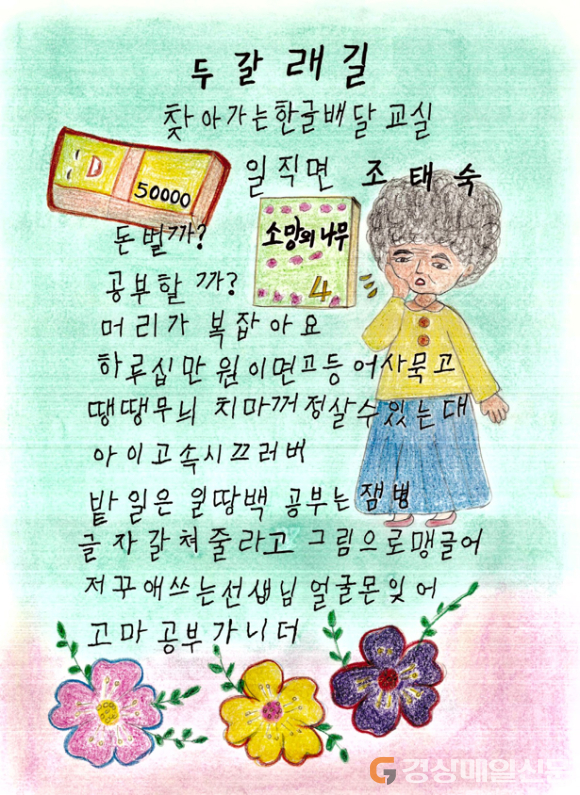 두 갈 래 길
찾아가는한글배달교실
일직면 조태숙
50000
돈벌까?
소망의 나무
4
공부할까?
머리가 복잡아요
하루십만원이면고등어사묵고
땡땡무늬 치마꺼정살수있는대
아이고속시끄러버
밭일은 일땅백 공부는잼병
글자갈쳐줄라고 그림으로맹글어
저꾸애쓰는선생님얼굴몬잊어
고마공부가니더
경상매일신문